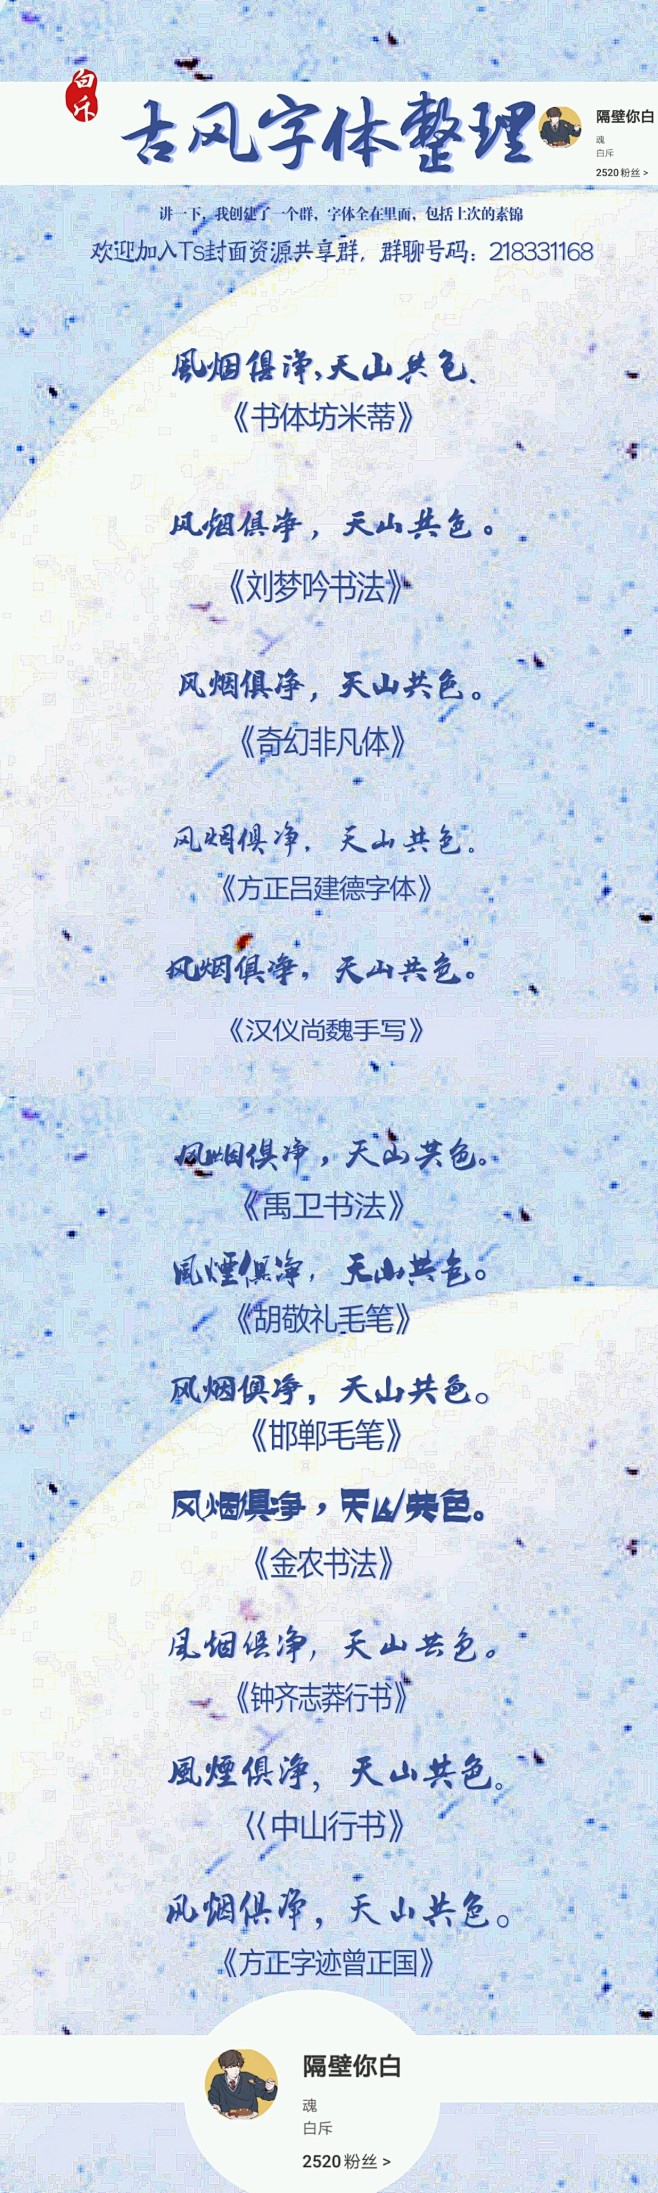 白斥
古风字体整理
隔壁你白
魂
白斥
2520粉丝 >
讲一下，我创建了一个群，字体全在里面，包括上次的素锦
欢迎加入Ts封面资源共享群，群聊号码：218331168
風烟俱净，天山共色、
《书体坊米蒂》
风烟俱净，天山共色。
《刘梦吟书法》
风烟俱净，天山共色。
《奇幻非凡体》
风烟俱净，天山共色。
《方正吕建德字体》
风烟俱净，天山共色。
《汉仪尚魏手写》
风烟俱净，天山共色。
《禹卫书法》
風煙俱净，天山共色。
《胡敬礼毛笔》
风烟俱净，天山共色。
《邯郸毛笔》
风烟俱净，天山共色。
《金农书法》
风烟俱净，天山共色。
《钟齐志莽行书》
風煙俱净，天山共色。
《中山行书》
风烟俱净，天山共色。
《方正字迹曾正国》
隔壁你白
魂
白斥
2520粉丝 >